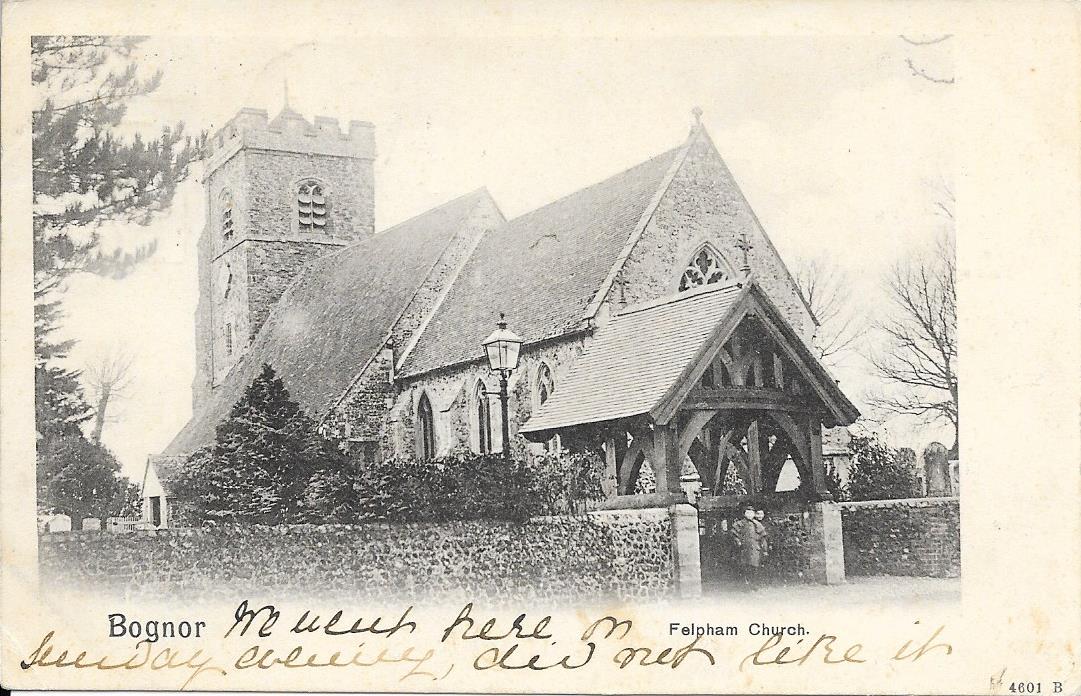 Bognor We went here on Felpham Church.
Sunday evening, did not like it
4601 B